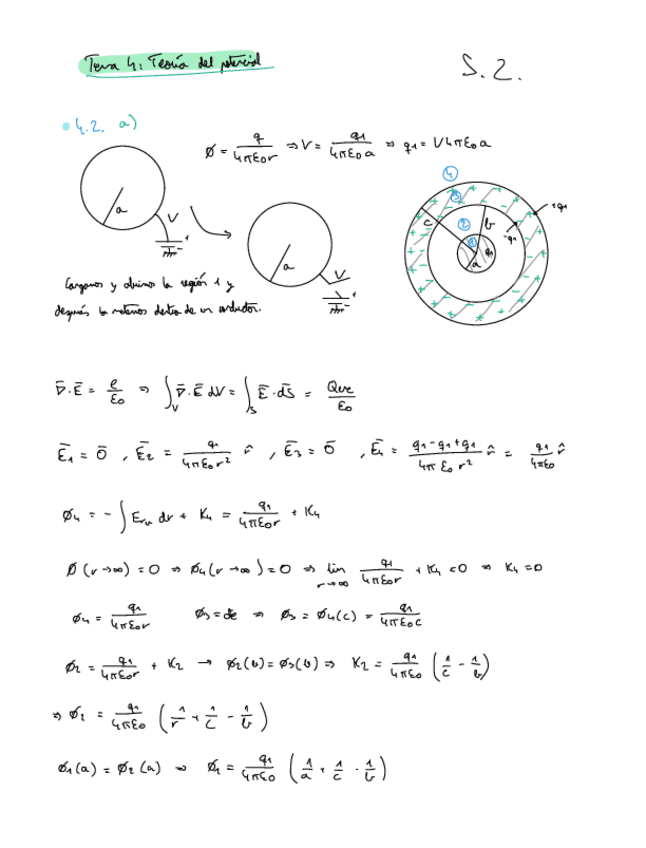 Tema 4: Teoría del potencial
S.2.
4.2. a)
Ø = q/(4πε₀r) ⇒ V = q₁/(4πε₀a) ⇒ q₁ = V4πε₀a
a
V
a
V
4
3
2
1
c
b
a
q₁
-q₁
+q₁
Cargamos y abrimos la región 1 y
después la metemos dentro de un conductor.
∇̄·Ē = ρ/ε₀ ⇒ ∫_V ∇̄·Ē dV = ∫_S Ē·dS̄ = Q/ε₀
Ē₁ = 0̄ , Ē₂ = q₁/(4πε₀r²) r̂ , Ē₃ = 0̄ , Ē₄ = (q₁-q₁+q₁)/(4πε₀r²) r̂ = q₁/(4πε₀) r̂
Ø₄ = -∫ dr + K₄ = q₁/(4πε₀r) + K₄
Ø(r→∞) = 0 ⇒ Ø₄(r→∞) = 0 ⇒ lim r→∞ q₁/(4πε₀r) + K₄ = 0 ⇒ K₄ = 0
Ø₄ = q₁/(4πε₀r) Ø₃ = cte ⇒ Ø₃ = Ø₄(c) = q₁/(4πε₀c)
Ø₂ = q₁/(4πε₀r) + K₂ → Ø₂(b) = Ø₃(b) ⇒ K₂ = q₁/(4πε₀) (1/c - 1/b)
⇒ Ø₂ = q₁/(4πε₀) (1/r + 1/c - 1/b)
Ø₁(a) = Ø₂(a) ⇒ Ø₁ = q₁/(4πε₀) (1/a + 1/c - 1/b)